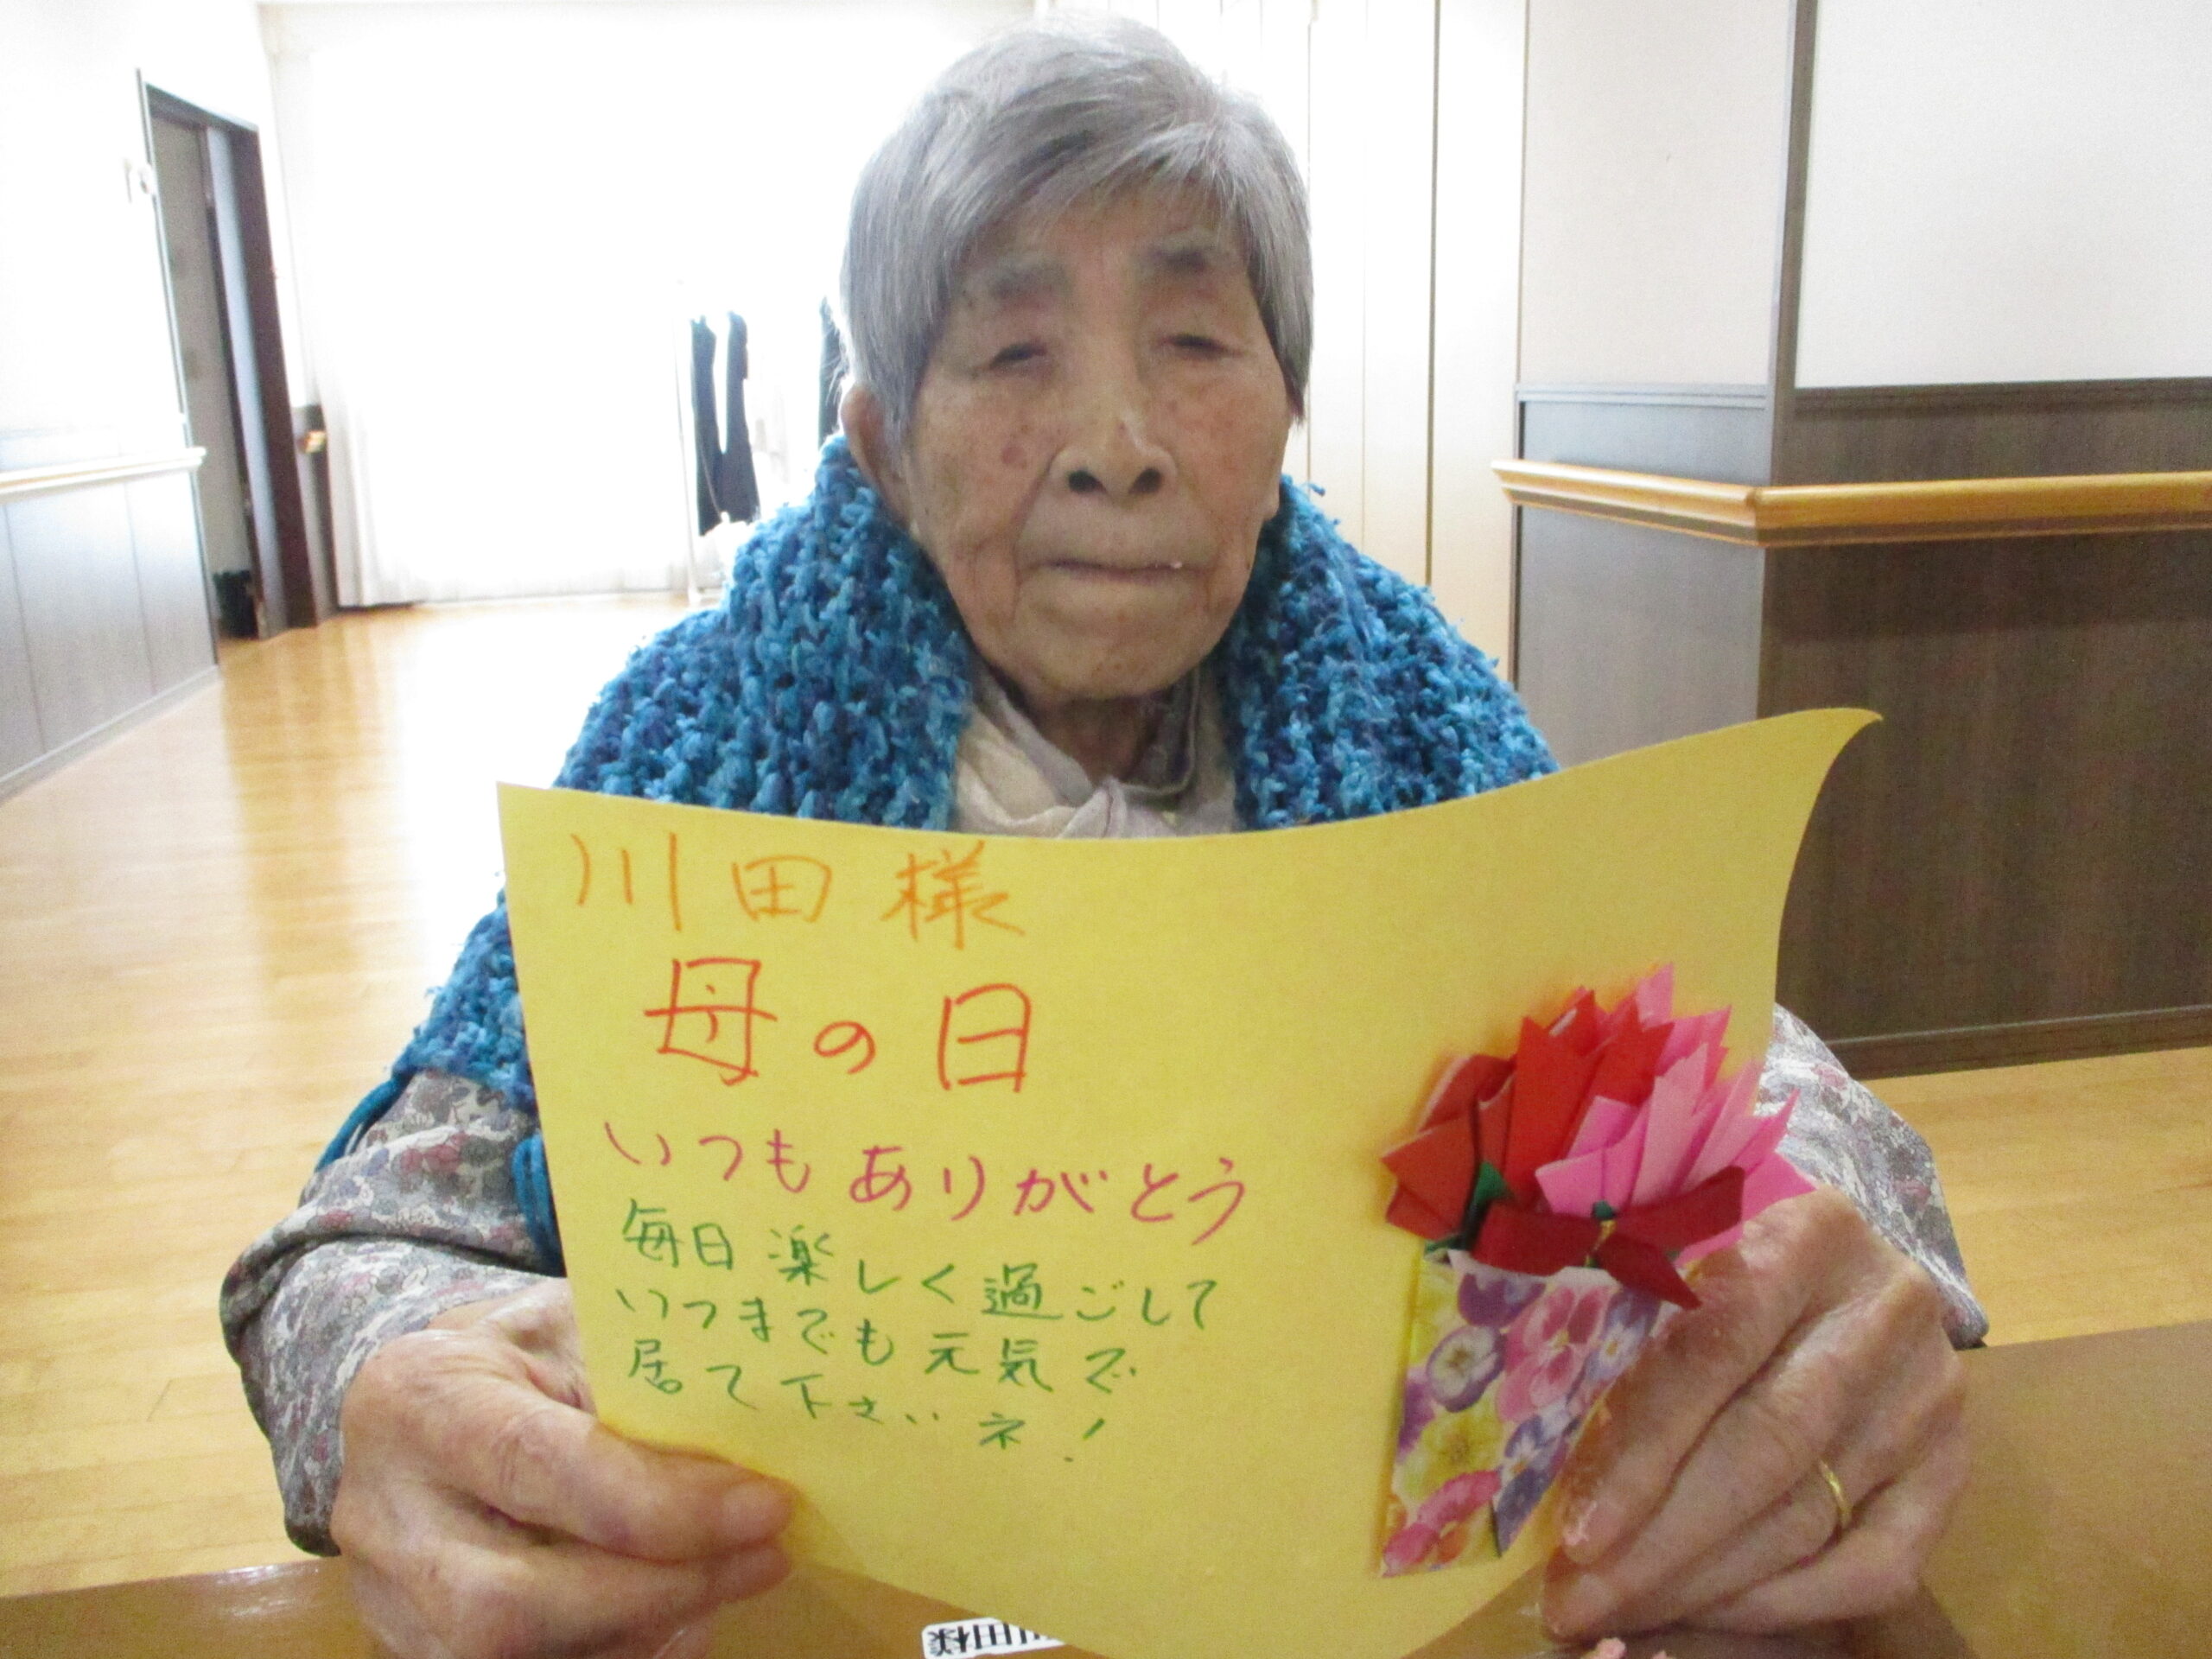 川田様
母の日
いつもありがとう
毎日楽しく過ごして
いつまでも元気で
居て下さいネ!
川田様